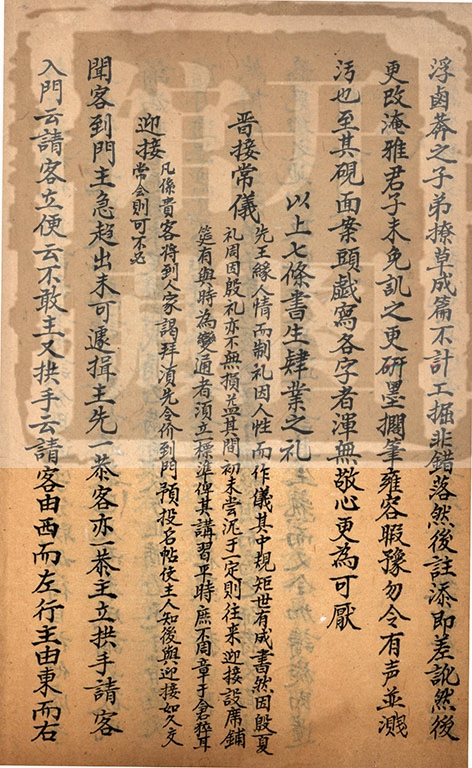 浮鹵莽之子弟撩草成篇不計工掘非錯落然後註添即差訛然後
更改淹雅君子未免訕之更研墨擱筆雍容暇豫勿令有声並濺
汚也至其硯面案頭戯寫各字者渾無敬心更為可厭
以上七條書生肄業之礼
晋接常儀
先王緣人情而制礼因人性而作儀其中規矩世有成書然因殷夏
礼周因殷礼亦不無損益其間初未尝泥于一定則往来迎接設席鋪
筵有與時為變通者湏立標準俾其講習平時庶不周章于倉猝耳
迎接
凡係貴客將到人家謁拜湏先令价到門預投名帖使主人知後與迎接如久交
常会則可不必
聞客到門主急趍出未可遽揖主先一恭客亦一恭主立拱手請客
入門云請客立便云不敢主又拱手云請客由西而左行主由東而右